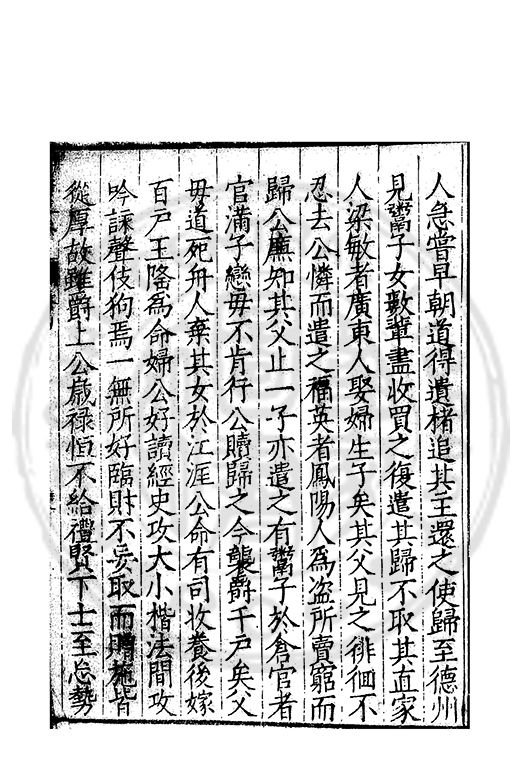 人急嘗早朝道得遺楮追其主還之使歸至德州
見鬻子女數輩盡收買之復遣其歸不取其直家
人梁敏者廣東人娶婦生子矣其父見之徘徊不
忍去公憐而遣之福英者鳳陽人爲盗所賣窮而
歸公廉知其父止一子亦遣之有鬻子於倉官者
官滿子戀毋不肯行公贖歸之今襲爵千戸矣父
毋道死舟人棄其女於江涯公命有司收養後嫁
百戸王隆爲命婦公好讀經史攻大小楷法間攻
吟諫聲伎狗焉一無所好臨財不妄取而贈施皆
從厚故雖爵上公歳祿恒不給禮賢下士至忘勢